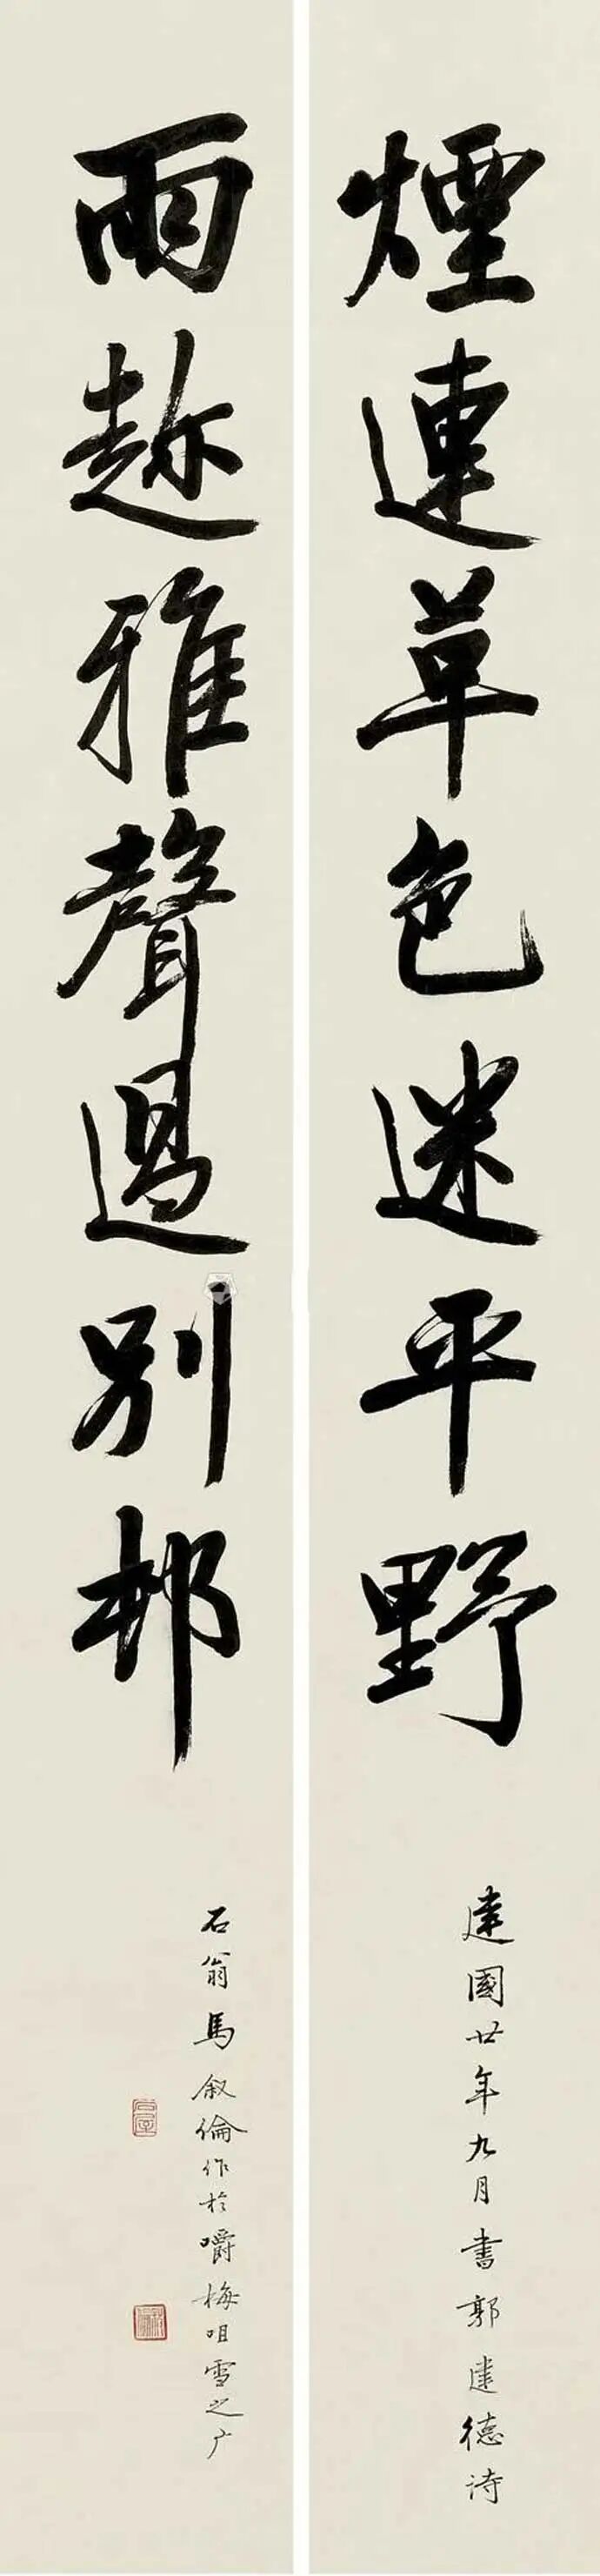 煙連草色迷平野
建國廿年九月書郭建德詩
雨趂雅聲過別邨
石翁馬叙倫作於嚼梅咀雪之广